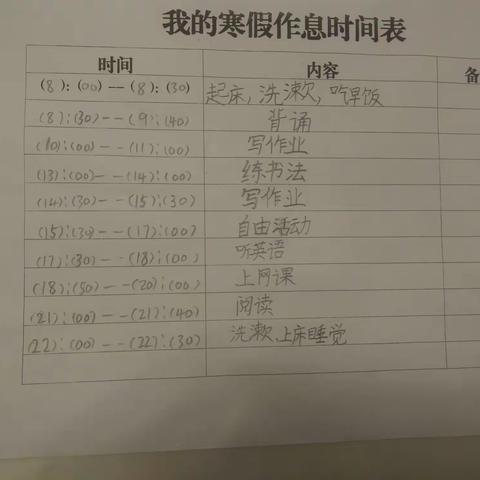 我的寒假作息时间表
时间 内容 备
(8):(00)——(8):(30) 起床,洗漱,吃早饭
(8):(30)--(9):(40) 背诵
(10):(00)--(11):(00) 写作业
(13):(00)--(14):(00) 练书法
(14):(30)--(15):(30) 写作业
(15):(30)--(17):(00) 自由活动
(17):(30)--(18):(00) 听英语
(18):(50)--(20):(00) 上网课
(21):(00)--(21):(40) 阅读
(22):(00)--(22):(30) 洗漱,上床睡觉